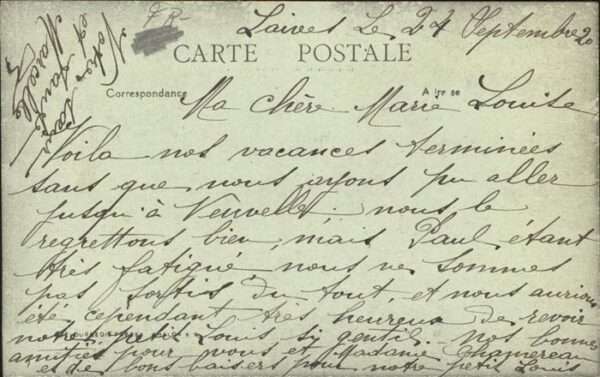 Laives Le 24 Septembre 20
CARTE POSTALE
Correspondance
Ma chère Marie Louise
Voila nos vacances terminées
sans que nous ayons pu aller
jusqu'à Neuvelle, nous le
regrettons bien, mais Paul étant
très fatigué nous ne sommes
pas sortis du tout, et nous aurions
été cependant très heureux de revoir
notre petit Louis si gentil. nos bonnes
amitiés pour vous et Madame Chamereau
et de bons baisers pour notre petit Louis
Votre
et
Marcelle